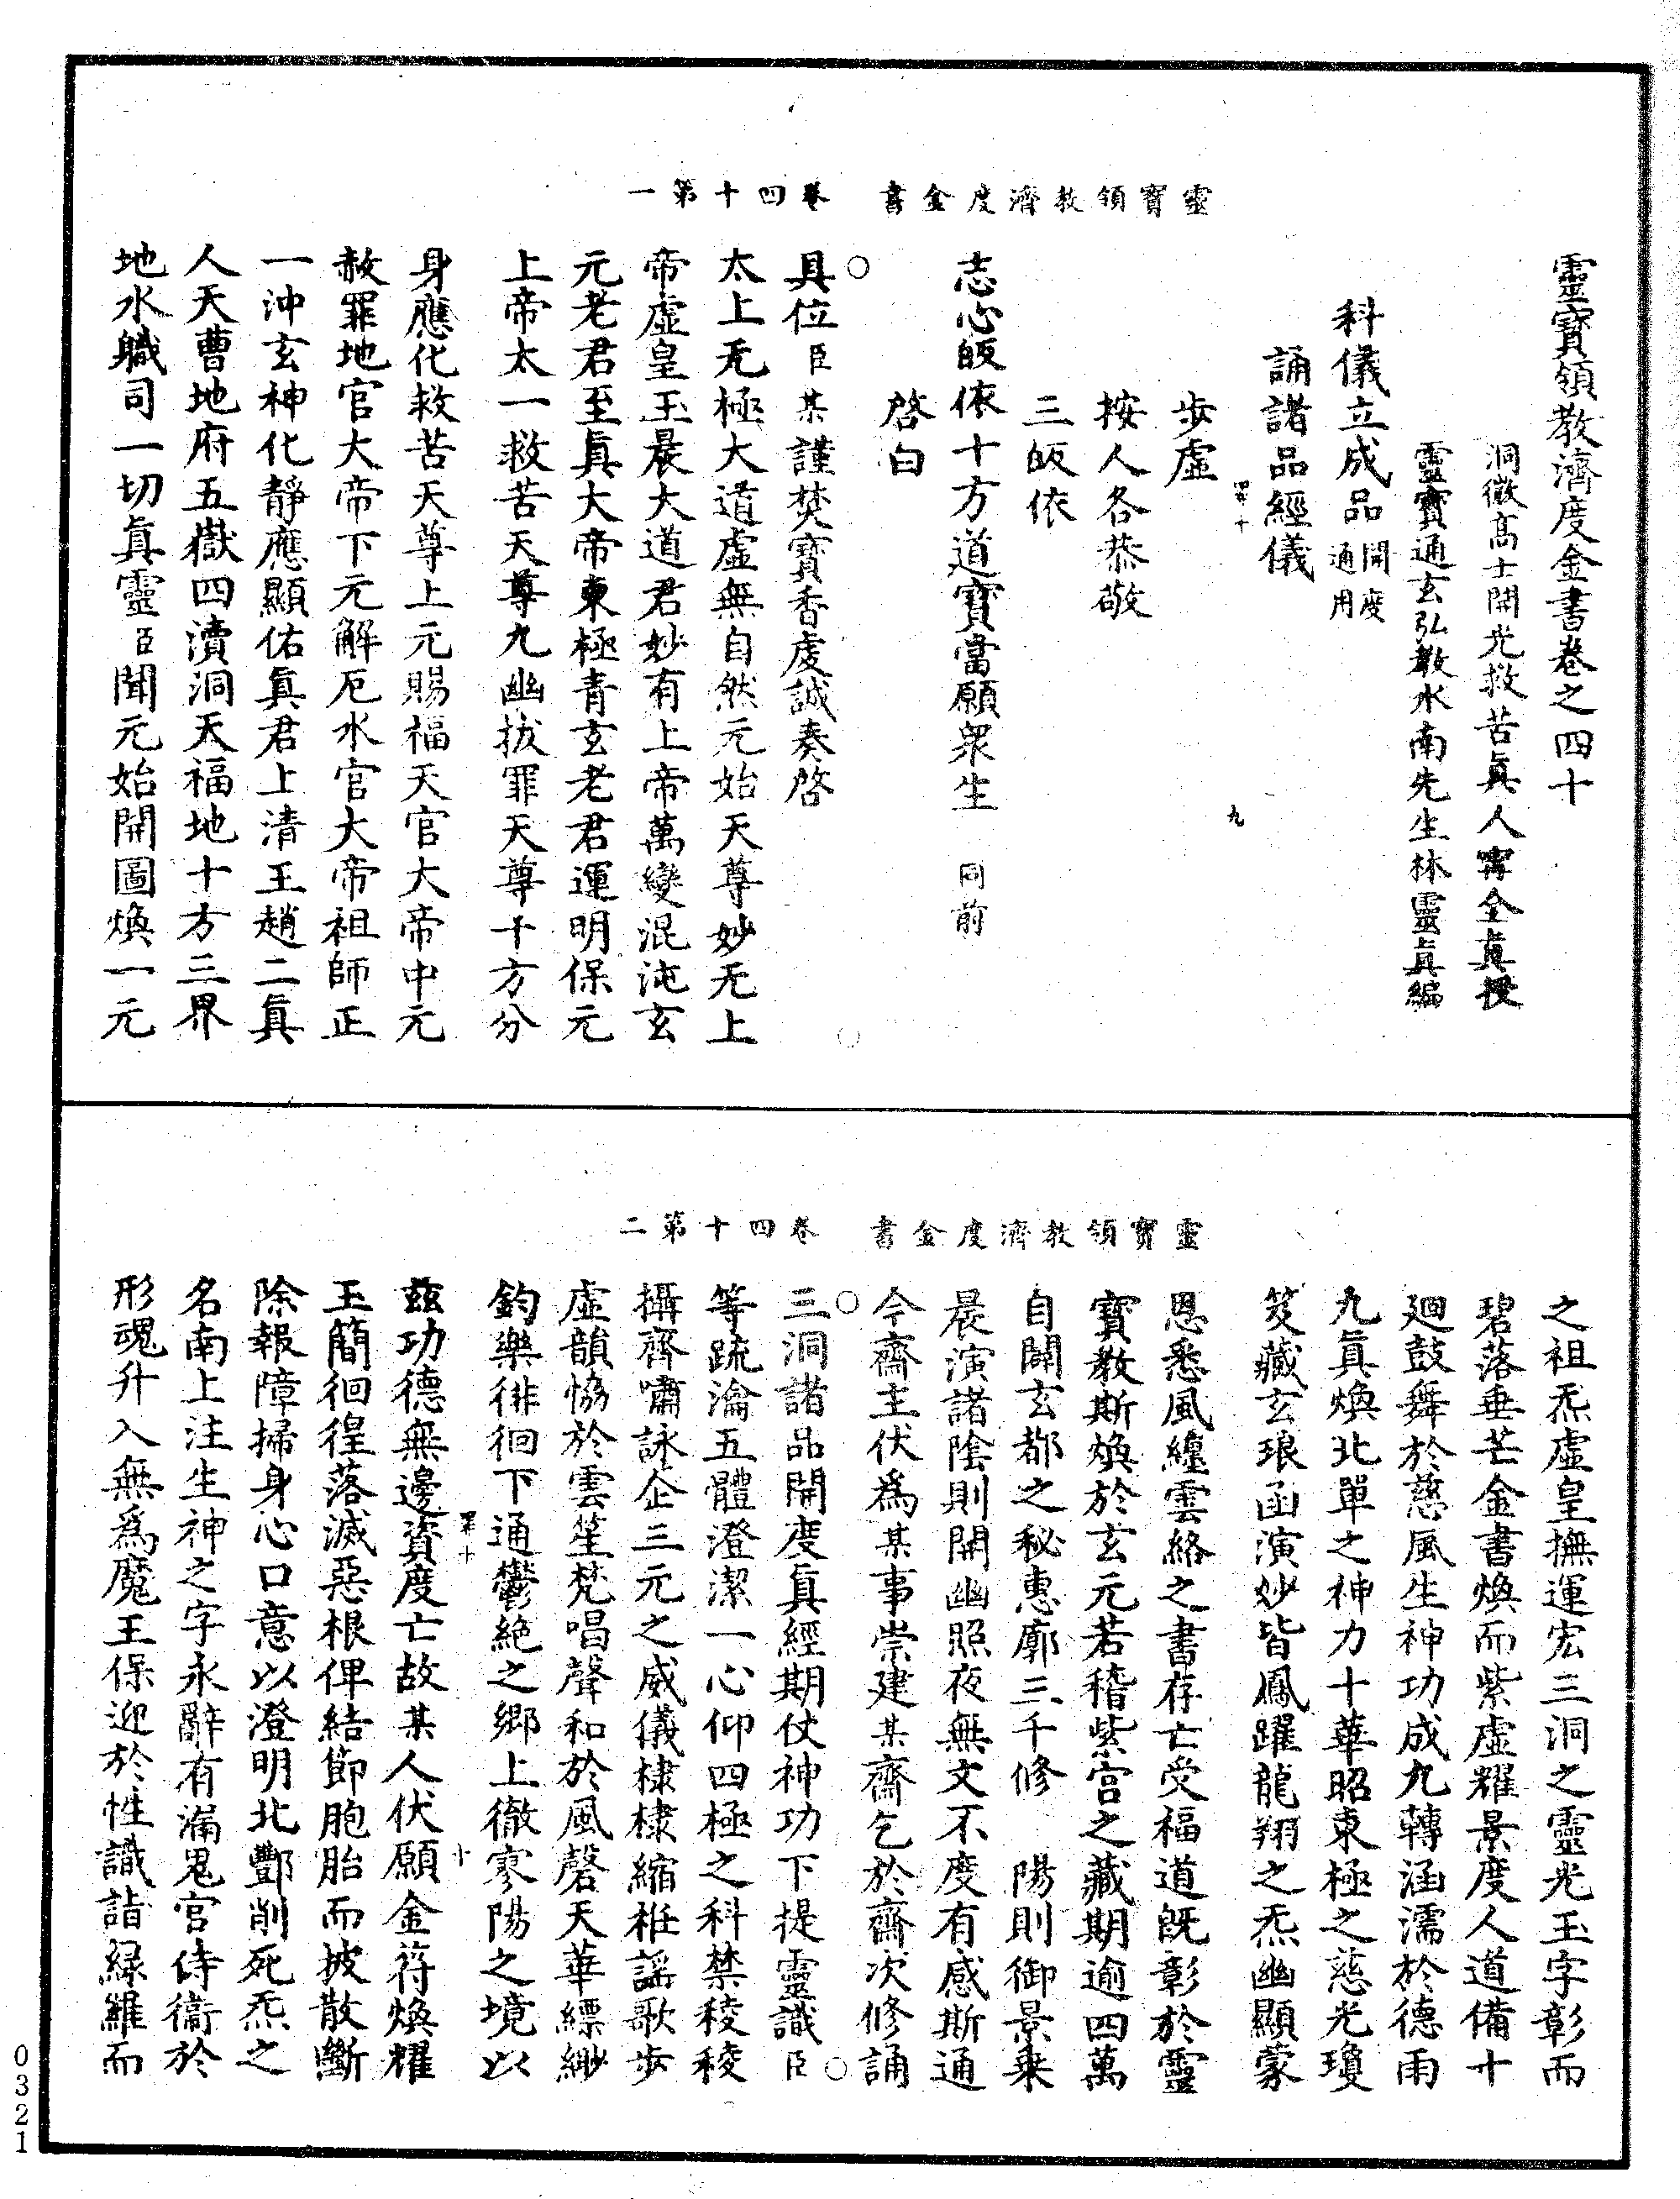 靈寶領教濟度金書　卷四十第一
靈寶領教濟度金書卷之四十
洞微高士開光救苦眞人甯全眞授
靈寶通玄弘教水南先生林靈眞編
科儀立成品開度通用
誦諸品經儀
四十　九
步虛
按人各恭敬
三皈依
志心皈依十方道寶當願衆生　同前
啓白
具位臣某謹焚寶香虔誠奏啓
太上无極大道虛無自然元始天尊妙无上
帝虛皇玉晨大道君妙有上帝萬變混沌玄
元老君至眞大帝東極青玄老君運明保元
上帝太一救苦天尊九幽拔罪天尊十方分
身應化救苦天尊上元賜福天官大帝中元
赦罪地官大帝下元解厄水官大帝祖師正
一沖玄神化靜應顯佑眞君上清王趙二眞
人天曹地府五嶽四瀆洞天福地十方三界
地水職司一切眞靈臣聞元始開圖煥一元
靈寶領教濟度金書　卷四十第二
之祖炁虛皇撫運宏三洞之靈光玉字彰而
碧落垂芒金書煥而紫虛耀景度人道備十
廻鼓舞於慈風生神功成九轉涵濡於德雨
九眞煥北單之神力十華昭東極之慈光瓊
笈藏玄琅函演妙皆鳳躍龍翔之炁幽顯蒙
恩悉風纏雲絡之書存亡受福道旣彰於靈
寶教斯煥於玄元若稽紫宫之藏期逾四萬
自闢玄都之秘惠廓三千修　陽則御景乘
晨演諸陰則開幽照夜無文不度有感斯通
今齋主伏爲某事崇建某齋乞於齋次修誦
三洞諸品開度眞經期仗神功下提靈識臣
等䟽瀹五體澄潔一心仰四極之科禁稜稜
攝齊嘯詠企三元之威儀棣棣縮袵謡歌步
虛韻恊於雲笙梵唱聲和於風磬天華縹緲
鈞樂徘徊下通鬱絶之鄉上徹寥陽之境以
四十　十
兹功德無邊資度亡故某人伏願金符煥耀
玉簡徊徨落滅惡根俾結節胞胎而披散斷
除報障掃身心口意以澄明北酆削死炁之
名南上注生神之字永辭有漏鬼官侍衞於
形魂升入無爲魔王保迎於性識詣緑羅而
0321